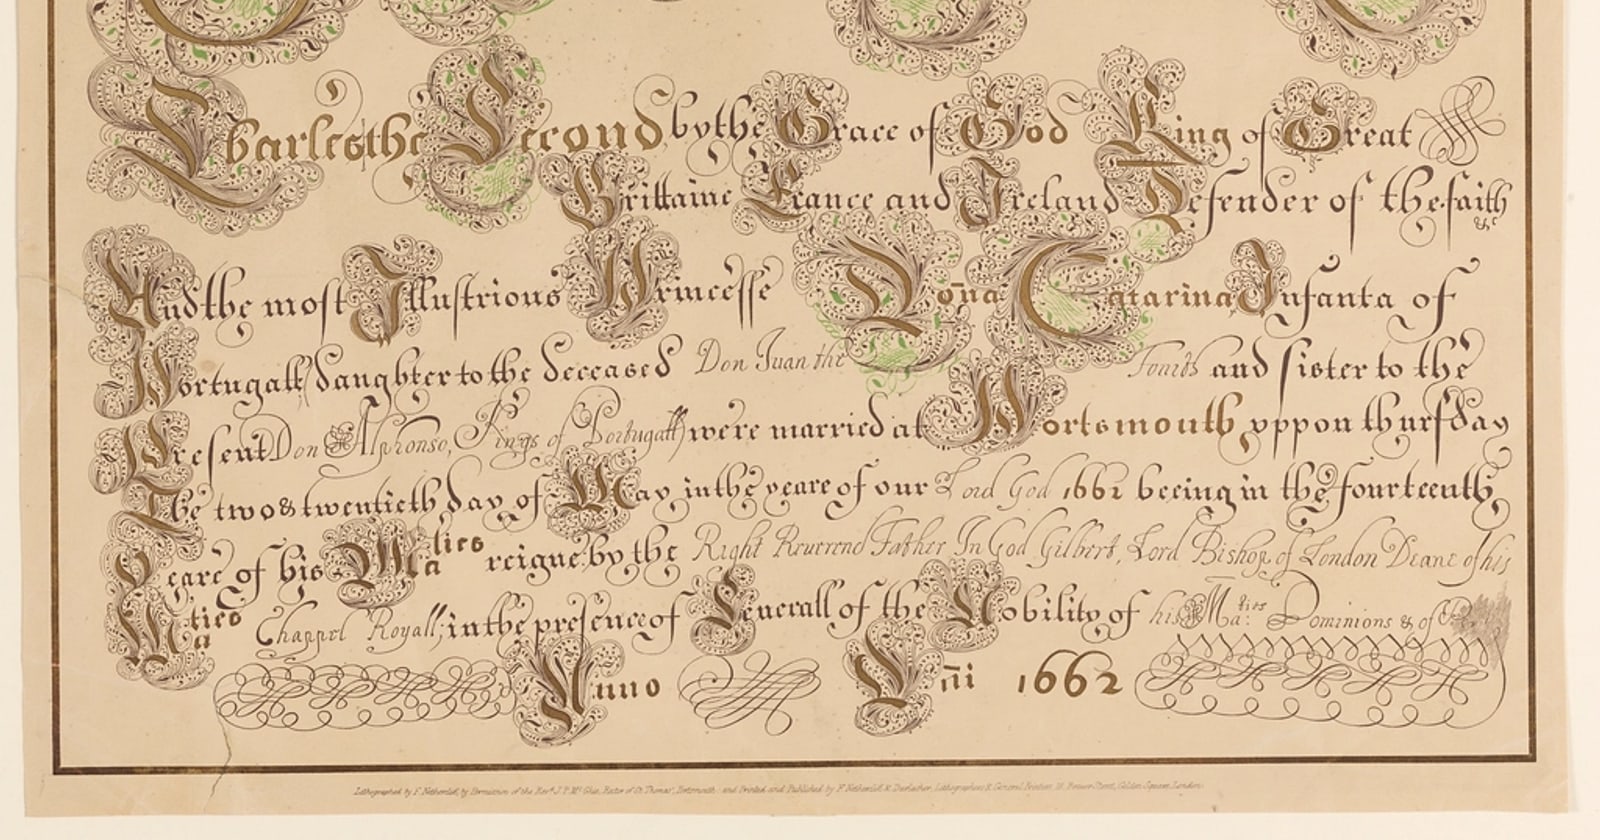 Charles the Second by the Grace of God King of Great
Brittaine France and Ireland Defender of the faith &c
And the most Illustrious Princesse Dōna Catarina Infanta of
Portugall, daughter to the deceased Don Juan the Fourth and sister to the
Present Don Alphonso, Kings of Portugall) were married at Portsmouth vppon thursday
The two & twentieth day of May in the yeare of our Lord God 1662 beeing in the fourteenth
Yeare of his Maties reigne by the Right Reverend Father In God Gilbert, Lord Bishop of London Deane of his
Maties Chappel Royall, in the presence of Severall of the Nobility of his Ma:ties Dominions & of
Anno Dni 1662
Lithographed by F. Netherclift, by Permission of the Revd. J. P. McGhie, Rector of St. Thomas', Portsmouth: and Printed and Published by F. Netherclift & Durlacher, Lithographers & General Printers, Brewer Street, Golden Square, London.